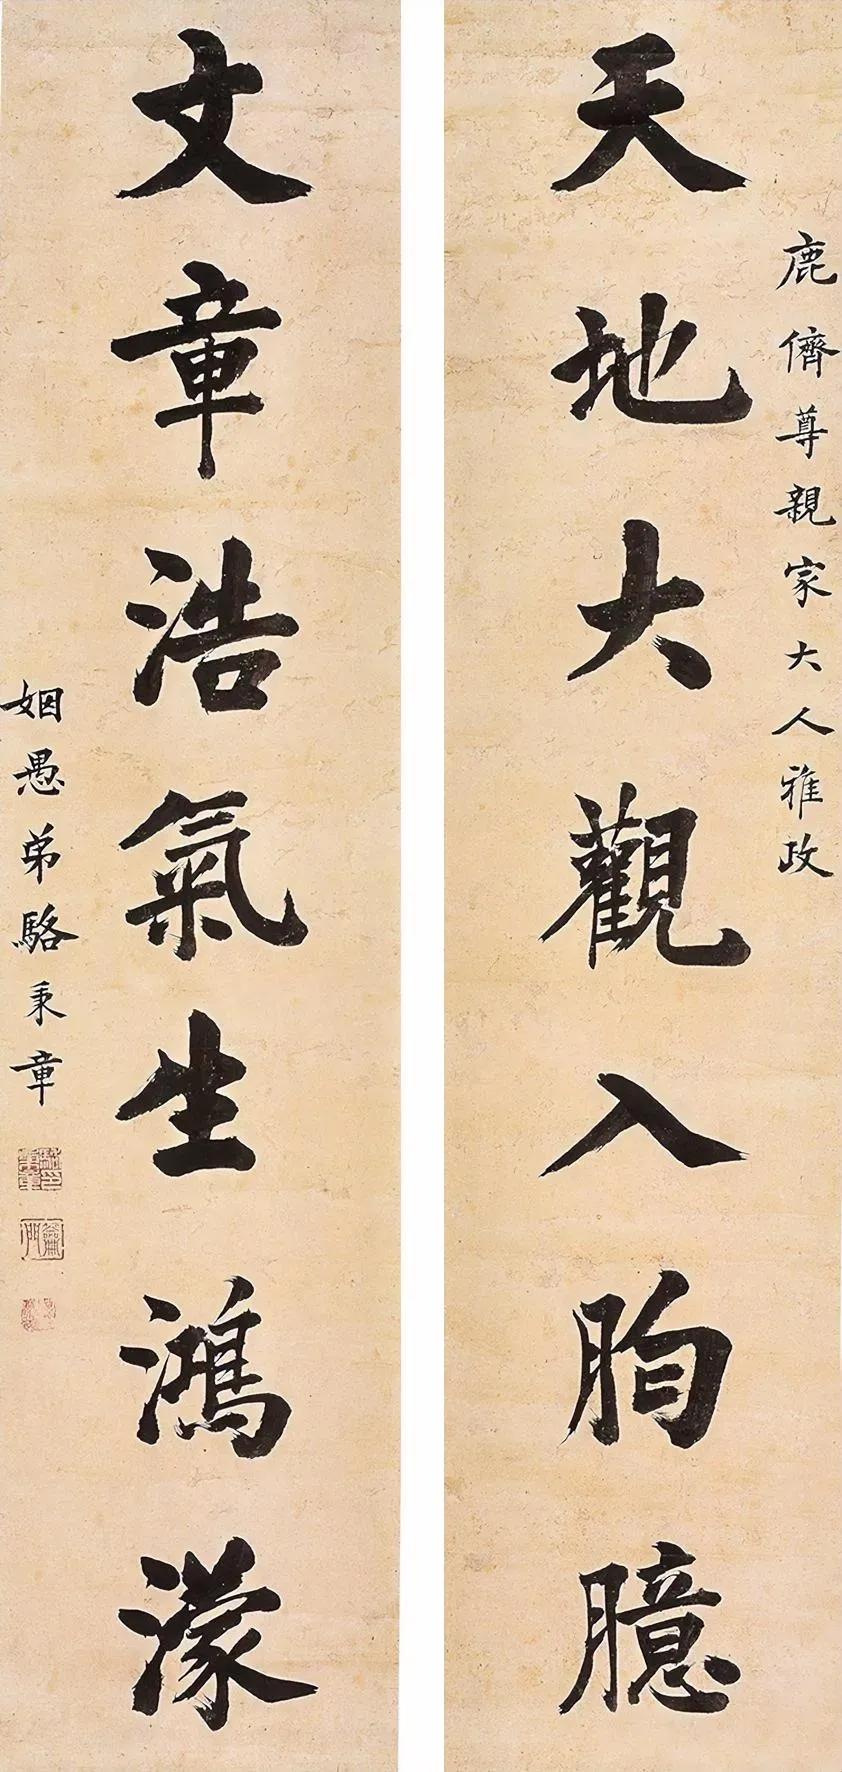 鹿儕尊親家大人雅政
天地大觀入胸臆
文章浩氣生鴻濛
姻愚弟駱秉章
駱印秉章
籥門